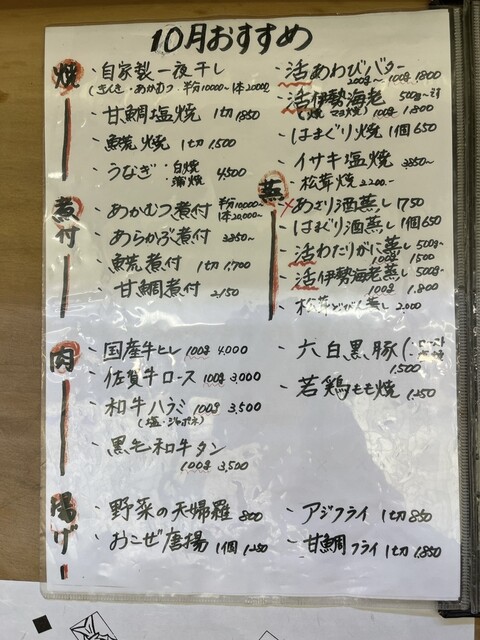 10月おすすめ
焼
・自家製一夜干し
(きんき・あかむつ・半分10000〜1本20000)
・甘鯛塩焼 1切1,850
・魚荒焼 1切1500
・うなぎ・白焼 蒲焼 4,500
・活あわびバター
200g〜 100g 1,800
・活伊勢海老 500g〜
100g 1,800
・はまぐり焼 1個650
・イサキ塩焼 3,850〜
・松茸焼 2,200-
煮付
・あかむつ煮付 半分10000〜 1本20,000
・あらかぶ煮付 3,850〜
・魚荒煮付 1切1,700
・甘鯛煮付 2,150
蒸
あさり酒蒸し 1750
・はまぐり酒蒸し 1個650
・活わたりがに蒸し 500g〜
100g 1500
・活伊勢海老蒸し 500g〜
100g 1,800
・松茸どびん蒸し 2,000
肉
・国産牛ヒレ 100g 4,000
・佐賀牛ロース 100g 3,000
・和牛ハラミ 100g 3,500
(塩・ジャポネ)
・黒毛和牛タン
100g 3,500
・六白黒豚
1,500
・若鶏もも焼 1,250
揚げ
・野菜の天婦羅 800
・おこぜ唐揚 1個1,250
・アジフライ 1切850
・甘鯛フライ 1切1,850